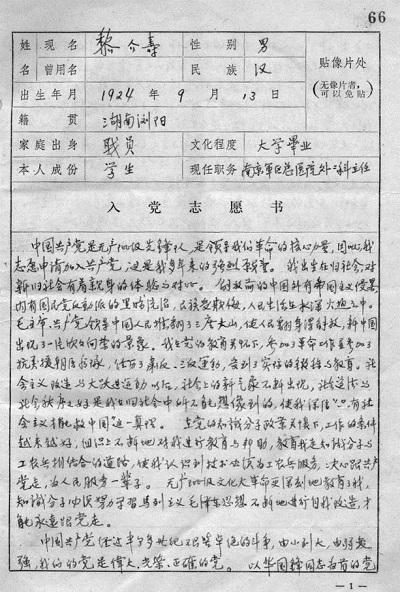 66
姓 现名 黎介寿 性别 男
名 曾用名 民族 汉
贴像片处
(无像片者,可以免贴)
出生年月 1924年9月13日
籍贯 湖南浏阳
家庭出身 职员 文化程度 大学毕业
本人成份 学生 现任职务 南京军区总医院外一科主任
入党志愿书
中国共产党是无产阶级先锋队,是领导我们革命的核心力量,因此我
志愿申请加入共产党,这是我多年来的强烈愿望。我出生在旧社会,对
新旧社会有着较深的体验与对比。解放前的中国外有帝国主义侵略
内有国民党反动派的黑暗统治,民族受欺侮,人民生活在水深火热之中。
毛主席、共产党领导中国人民推翻了三座大山,使人民翻身得解放,新中国
出现了一片欣欣向荣的景象。我在党的教育关怀下,参加了革命工作,参加了
抗美援朝医疗队,经历了肃反、三反运动,受到了实际的锻炼与教育。社
会主义改造与大跃进运动以后,社会上的新气象不断出现,社会道德与
社会秩序之好是我在旧社会中所不能想像到的,使我深信“只有社
会主义才能救中国”这一真理。在党的知识分子政策关怀下,工作的条件
越来越好,组织上不断地对我进行教育与帮助,教育我走知识分子与
工农兵相结合的道路,使我认识到技术必须为工农兵服务,决心跟共产
党走,为人民服务一辈子。无产阶级文化大革命更深刻地教育了我,
知识分子必须努力学习马列主义毛泽东思想,不断地进行自我改造,才
能永远跟党走。
中国共产党经过半个多世纪艰苦卓绝的斗争,由小到大,由弱变
强,我们的党是伟大、光荣、正确的党。以华国锋同志为首的党
—1—